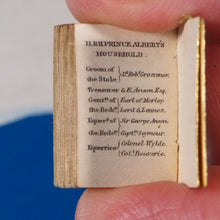 H.R.H. PRINCE ALBERT'S
HOUSEHOLD.
Groom of
the Stole } Ld. Robt. Grosvenor.
Treasurer G. E. Anson Esq.
Gentn. of { Earl of Morley.
the Bedch. { Lord G. Lennox.
Equer. of { Sir George Anson
the Bedch. { Capt. Seymour.
Equerries { Colonel Wylde.
Col. Bouverie.